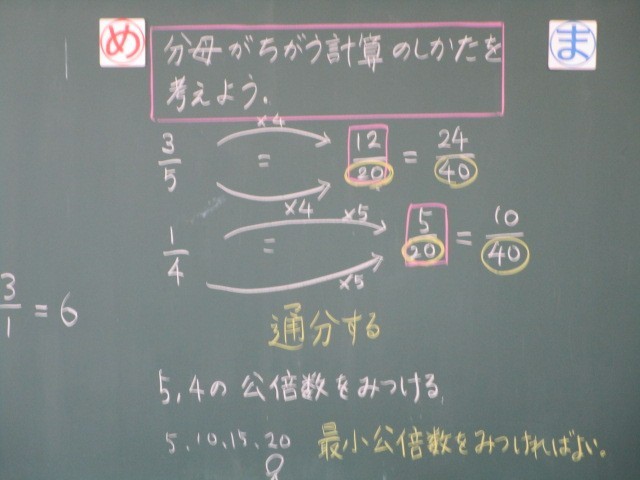 め 分母がちがう計算のしかたを ま
考えよう。
×4
3/5 = 12/20 = 24/40
×4 ×5
1/4 = 5/20 = 10/40
×5
3/1 = 6
通分する
5,4の公倍数をみつける
5.10.15.20 最小公倍数をみつければよい。